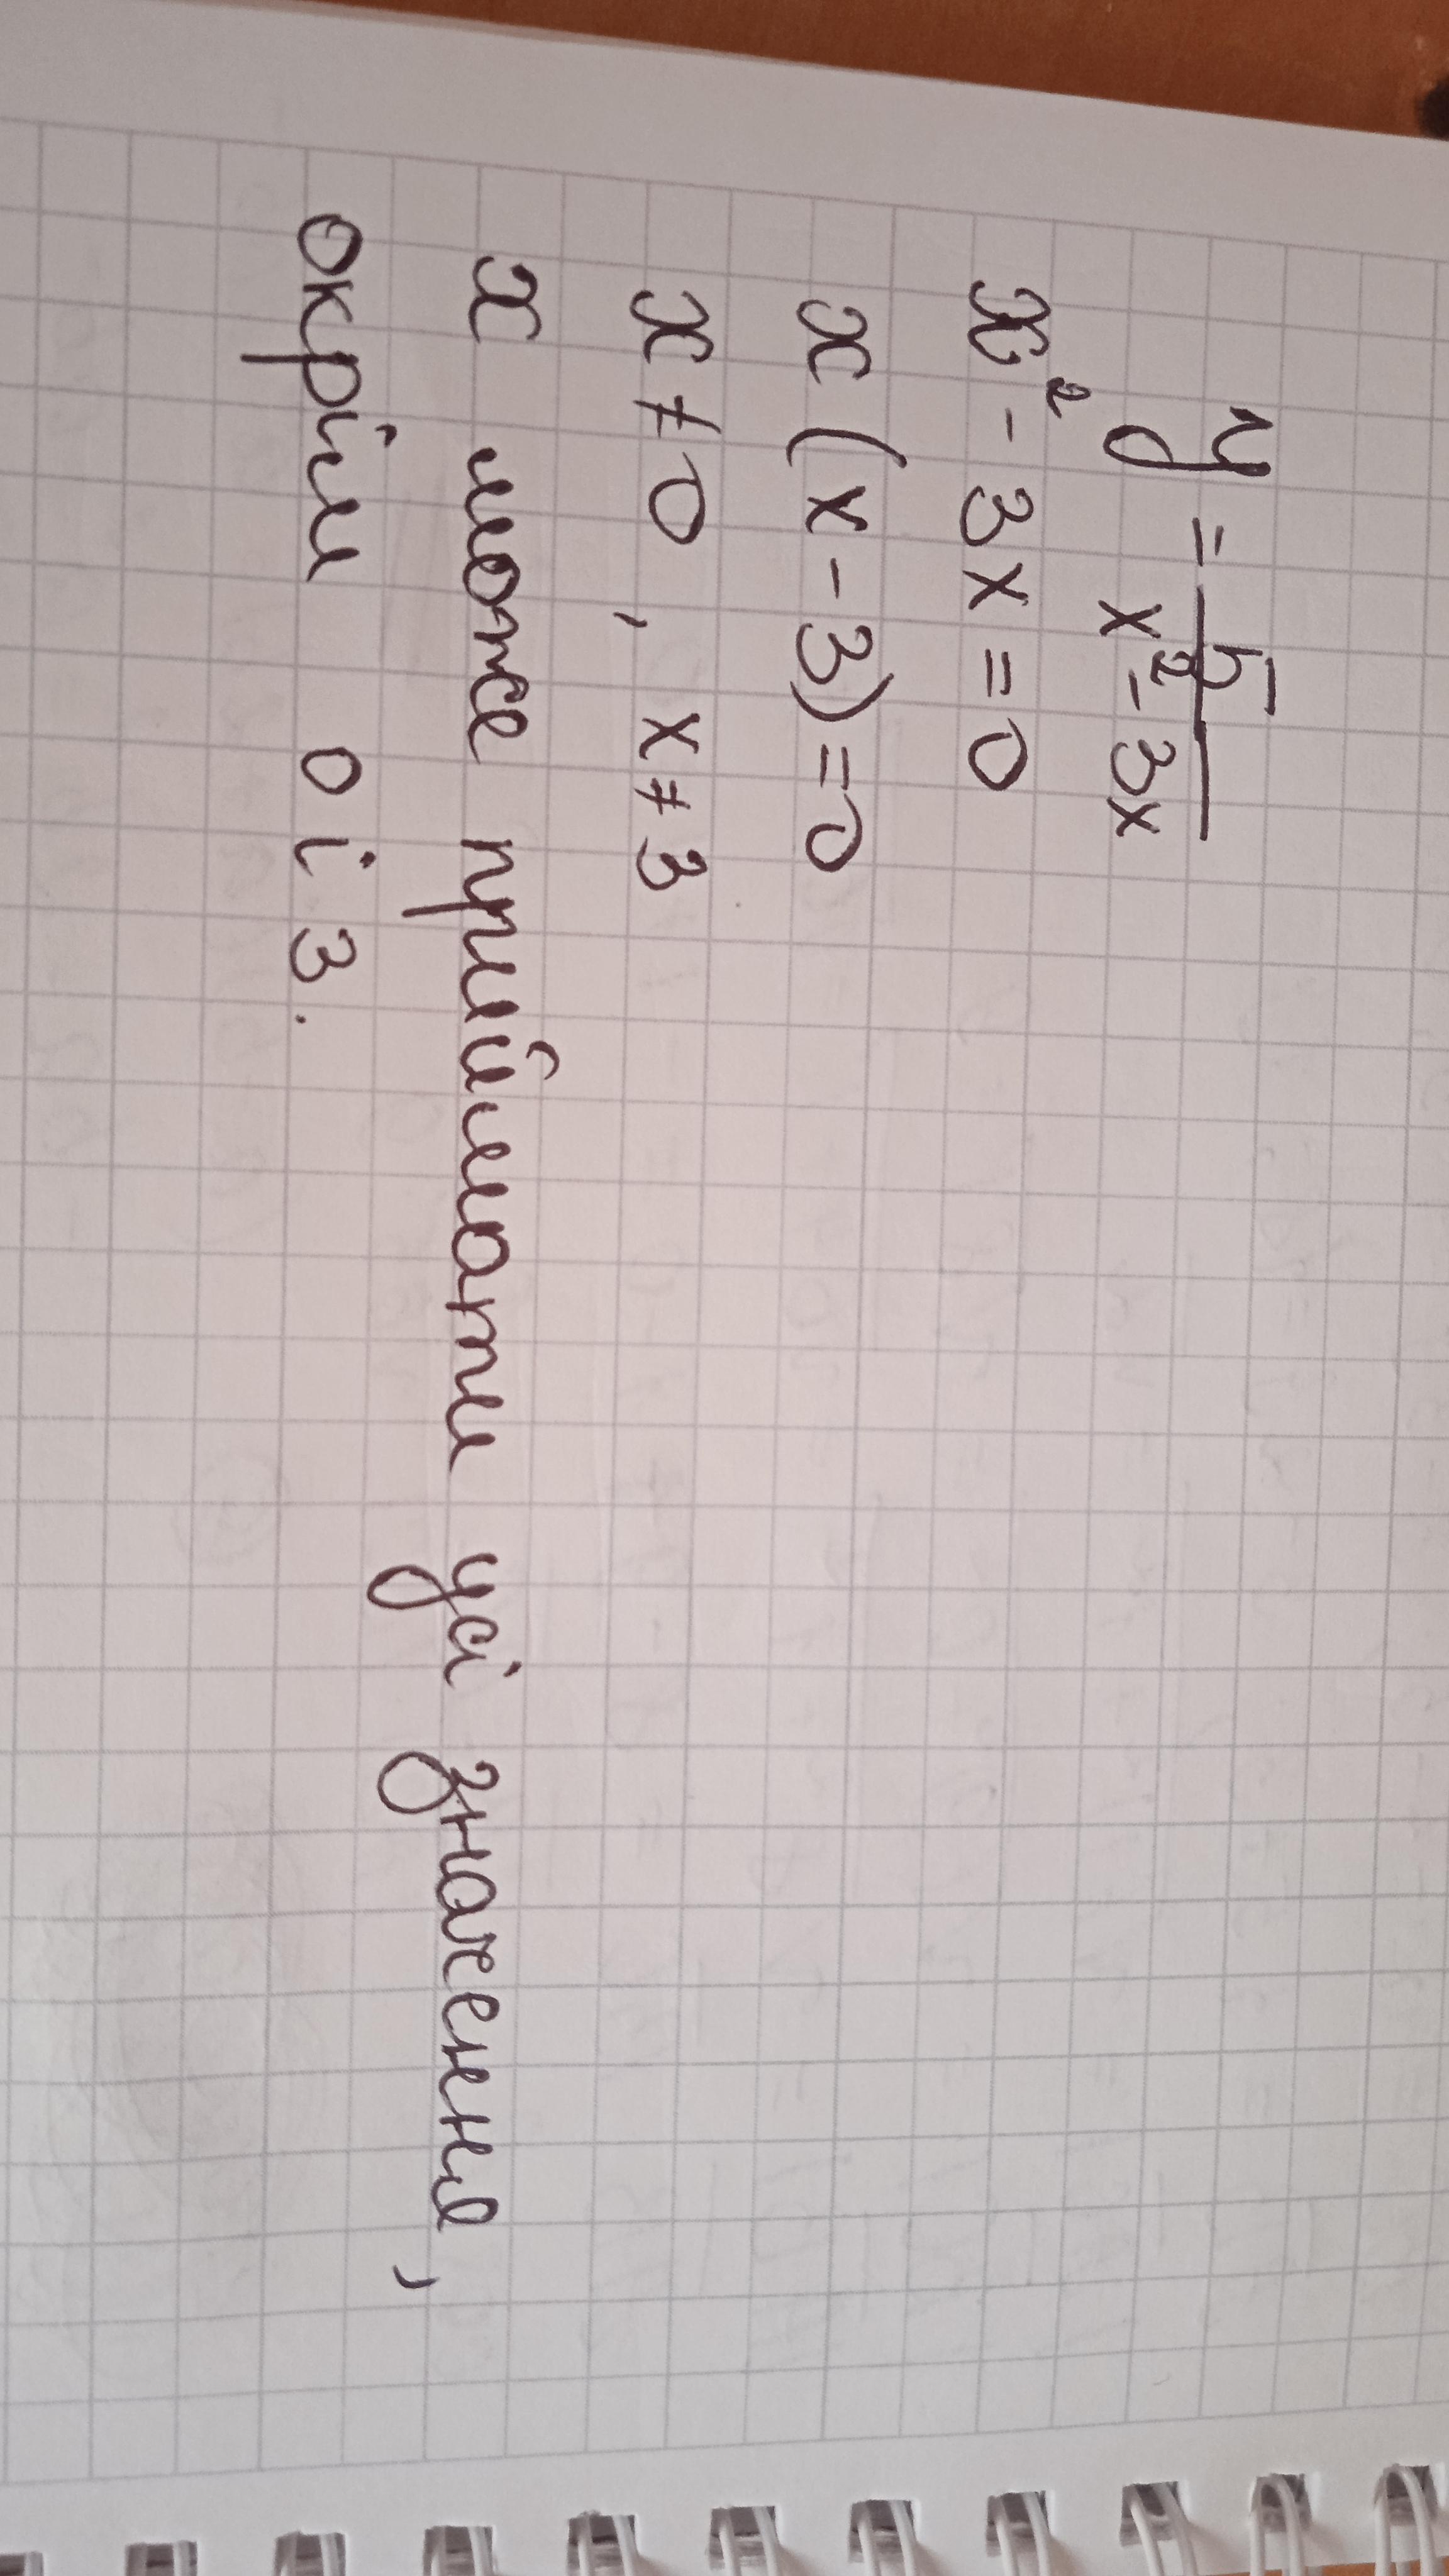 y = 5/(x² - 3x)
x² - 3x = 0
x (x - 3) = 0
x ≠ 0, x ≠ 3
x може приймати усі значення,
окрім 0 і 3.